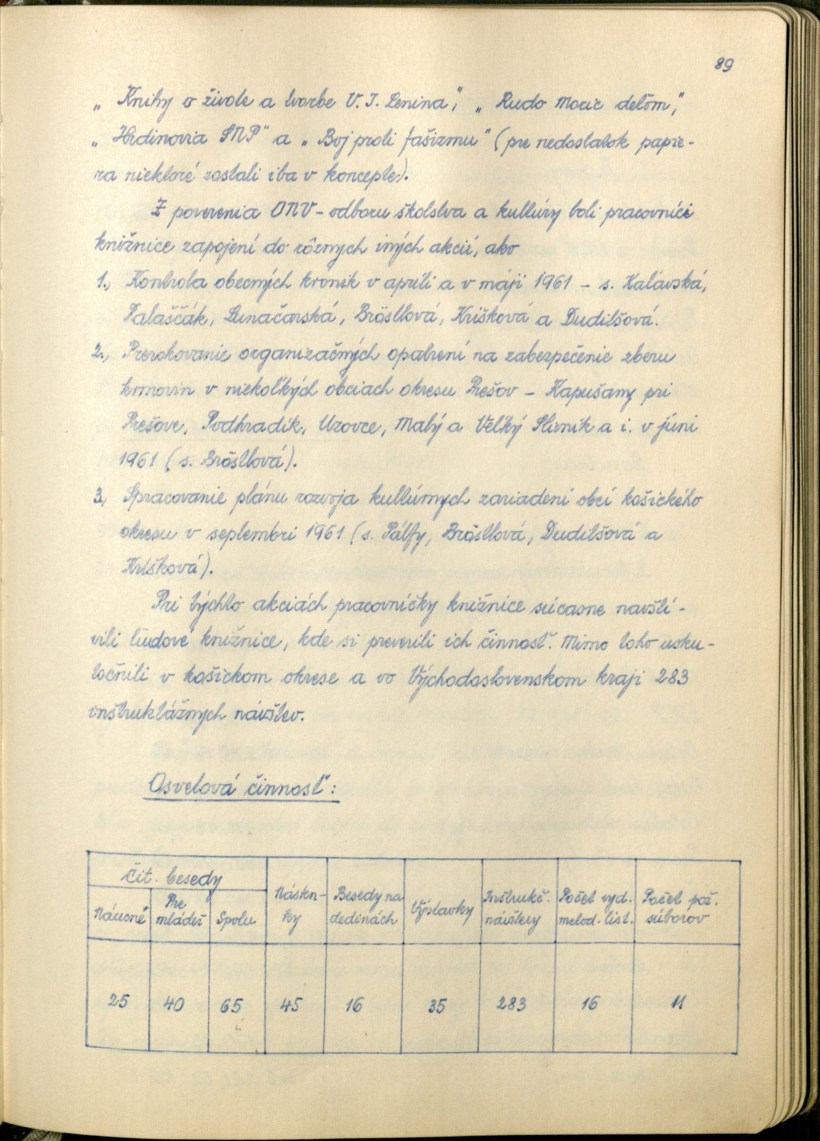 89
„Knihy o živote a tvorbe V. I. Lenina", „Rudo Moric deťom",
„Hrdinovia SNP" a „Boj proti fašizmu" (pre nedostatok papie-
ra niektoré zostali iba v koncepte).
Z poverenia ONV-odboru školstva a kultúry boli pracovníci
knižnice zapojení do rôznych iných akcií, ako
1., Kontrola obecných kroník v apríli a v máji 1961 - s. Kalavská,
Falaščák, Lunačarská, Bröstlová, Krišková a Dudilšová.
2., Prerokovanie organizačných opatrení na zabezpečenie zberu
krmovín v niekoľkých obciach okresu Prešov - Kapušany pri
Prešove, Podhradík, Uzovce, Malý a Veľký Slivník a i. v júni
1961 (s. Bröstlová).
3., Spracovanie plánu rozvoja kultúrnych zariadení obcí košického
okresu v septembri 1961 (s. Pálfy, Bröstlová, Dudilšová a
Krišková).
Pri týchto akciách pracovníčky knižnice súčasne navští-
vili ľudové knižnice, kde si preverili ich činnosť. Mimo toho usku-
točnili v košickom okrese a vo Východoslovenskom kraji 283
inštruktážnych návštev.
Osvetová činnosť:
Čit. besedy
Náučné Pre mládež Spolu Násten-ky Besedy na dedinách Výstavky Inštrukč. návštevy Počet vyd. metod. list. Počet pož. súborov
25 40 65 45 16 35 283 16 11